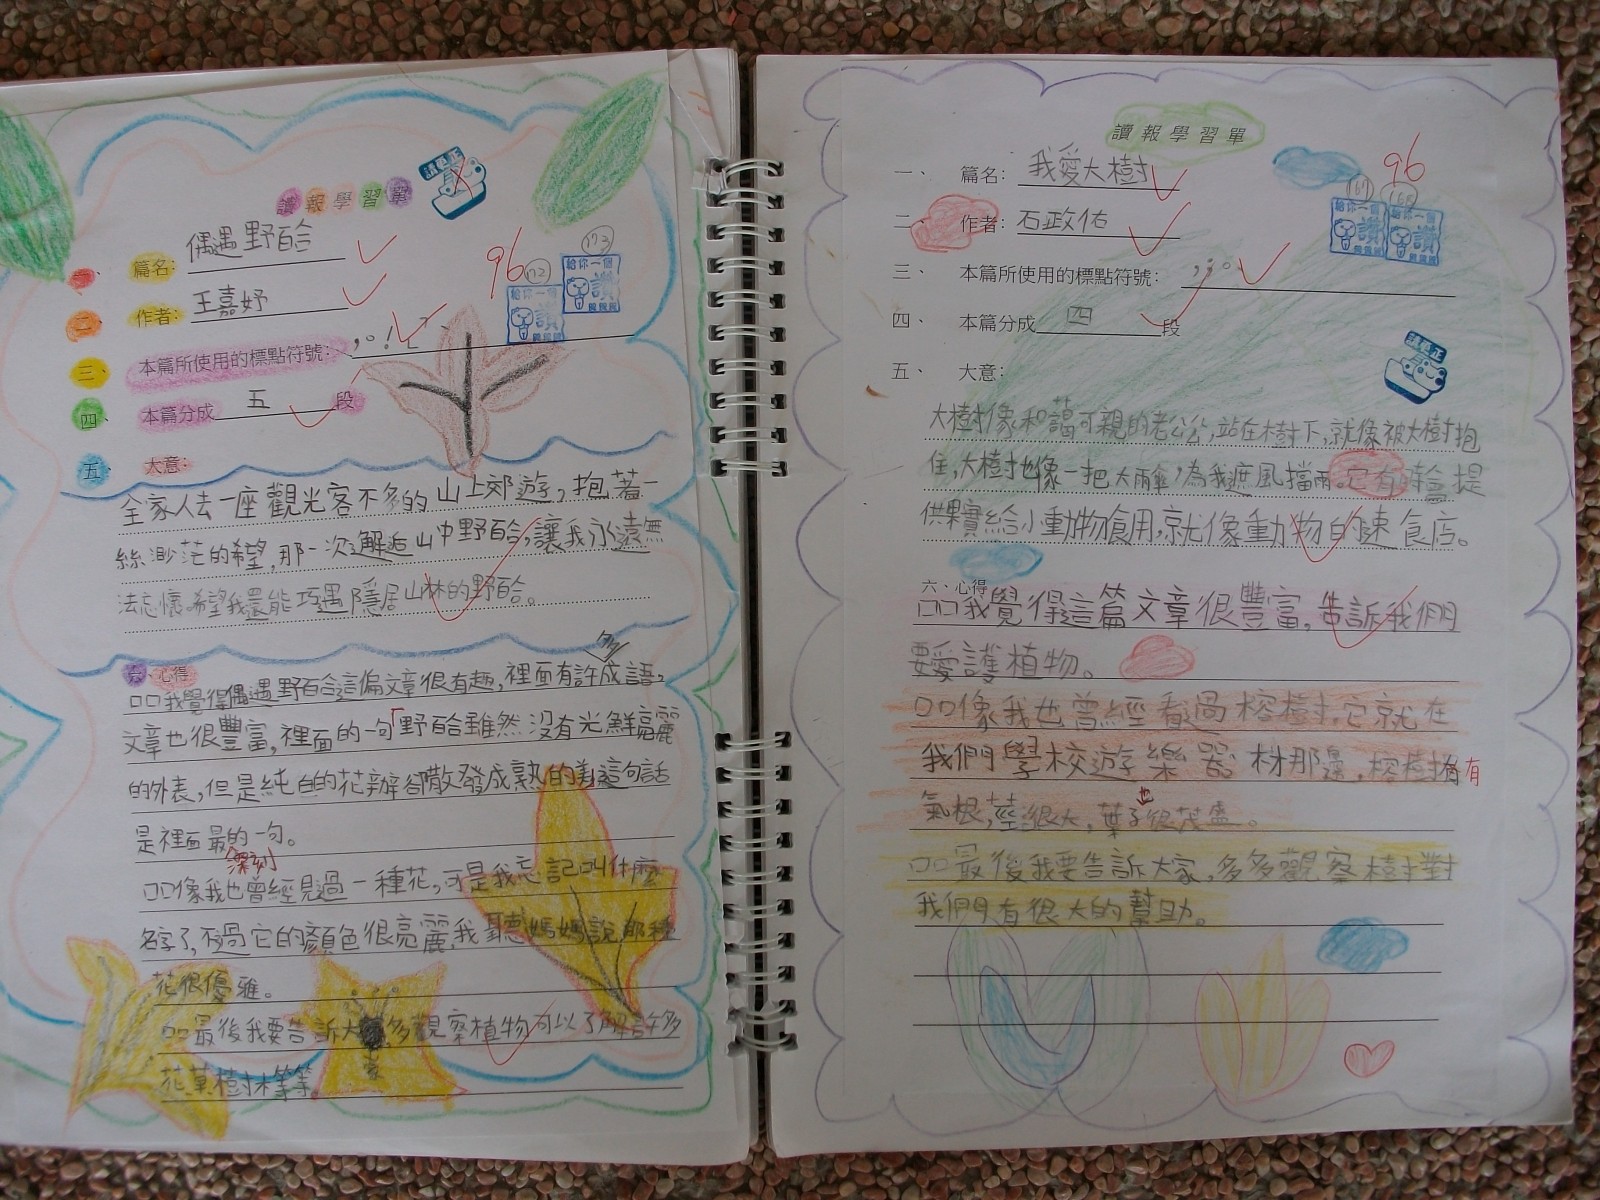 讀報學習單
請更正
一、 篇名：偶遇野百合
96
172
173
給你一個
讚
給你一個
讚
二、 作者：王嘉妤
三、 本篇所使用的標點符號：，。！「」
四、 本篇分成 五 段
五、 大意：
全家人去一座觀光客不多的山上郊遊，抱著一
絲渺茫的希望，那一次邂逅山中野百合，讓我永遠無
法忘懷。希望我還能巧遇隱居山林的野百合。
六、心得
多
口口我覺得偶遇野百合這偏文章很有趣，裡面有許成語，
文章也很豐富，裡面的一句「野百合雖然沒有光鮮亮麗
的外表，但是純白的花瓣卻散發成熟的美這句話
是裡面最的一句。
深刻
口口像我也曾經見過一種花，可是我忘記叫什麼
名字了，不過它的顏色很亮麗我聽媽媽說那種
花很優雅。
口口最後我要告訴大家多觀察植物可以了解許多
花草樹木等等。
讀報學習單
96
一、 篇名：我愛大樹
167
168
給你一個
讚
給你一個
讚
二、 作者：石政佑
三、 本篇所使用的標點符號：，；。
四、 本篇分成 四 段
請更正
五、 大意：
大樹像和藹可親的老公公，站在樹下，就像被大樹抱
住，大樹也像一把大雨傘，為我遮風擋雨。它有時會提
供果實給小動物食用，就像動物的速食店。
六、心得
口口我覺得這篇文章很豐富，告訴我們
要愛護植物。
口口像我也曾經看過榕樹，它就在
我們學校遊樂器材那邊，榕樹有
氣根，莖很大，葉子也很茂盛。
口口最後我要告訴大家，多多觀察樹對
我們有很大的幫助。